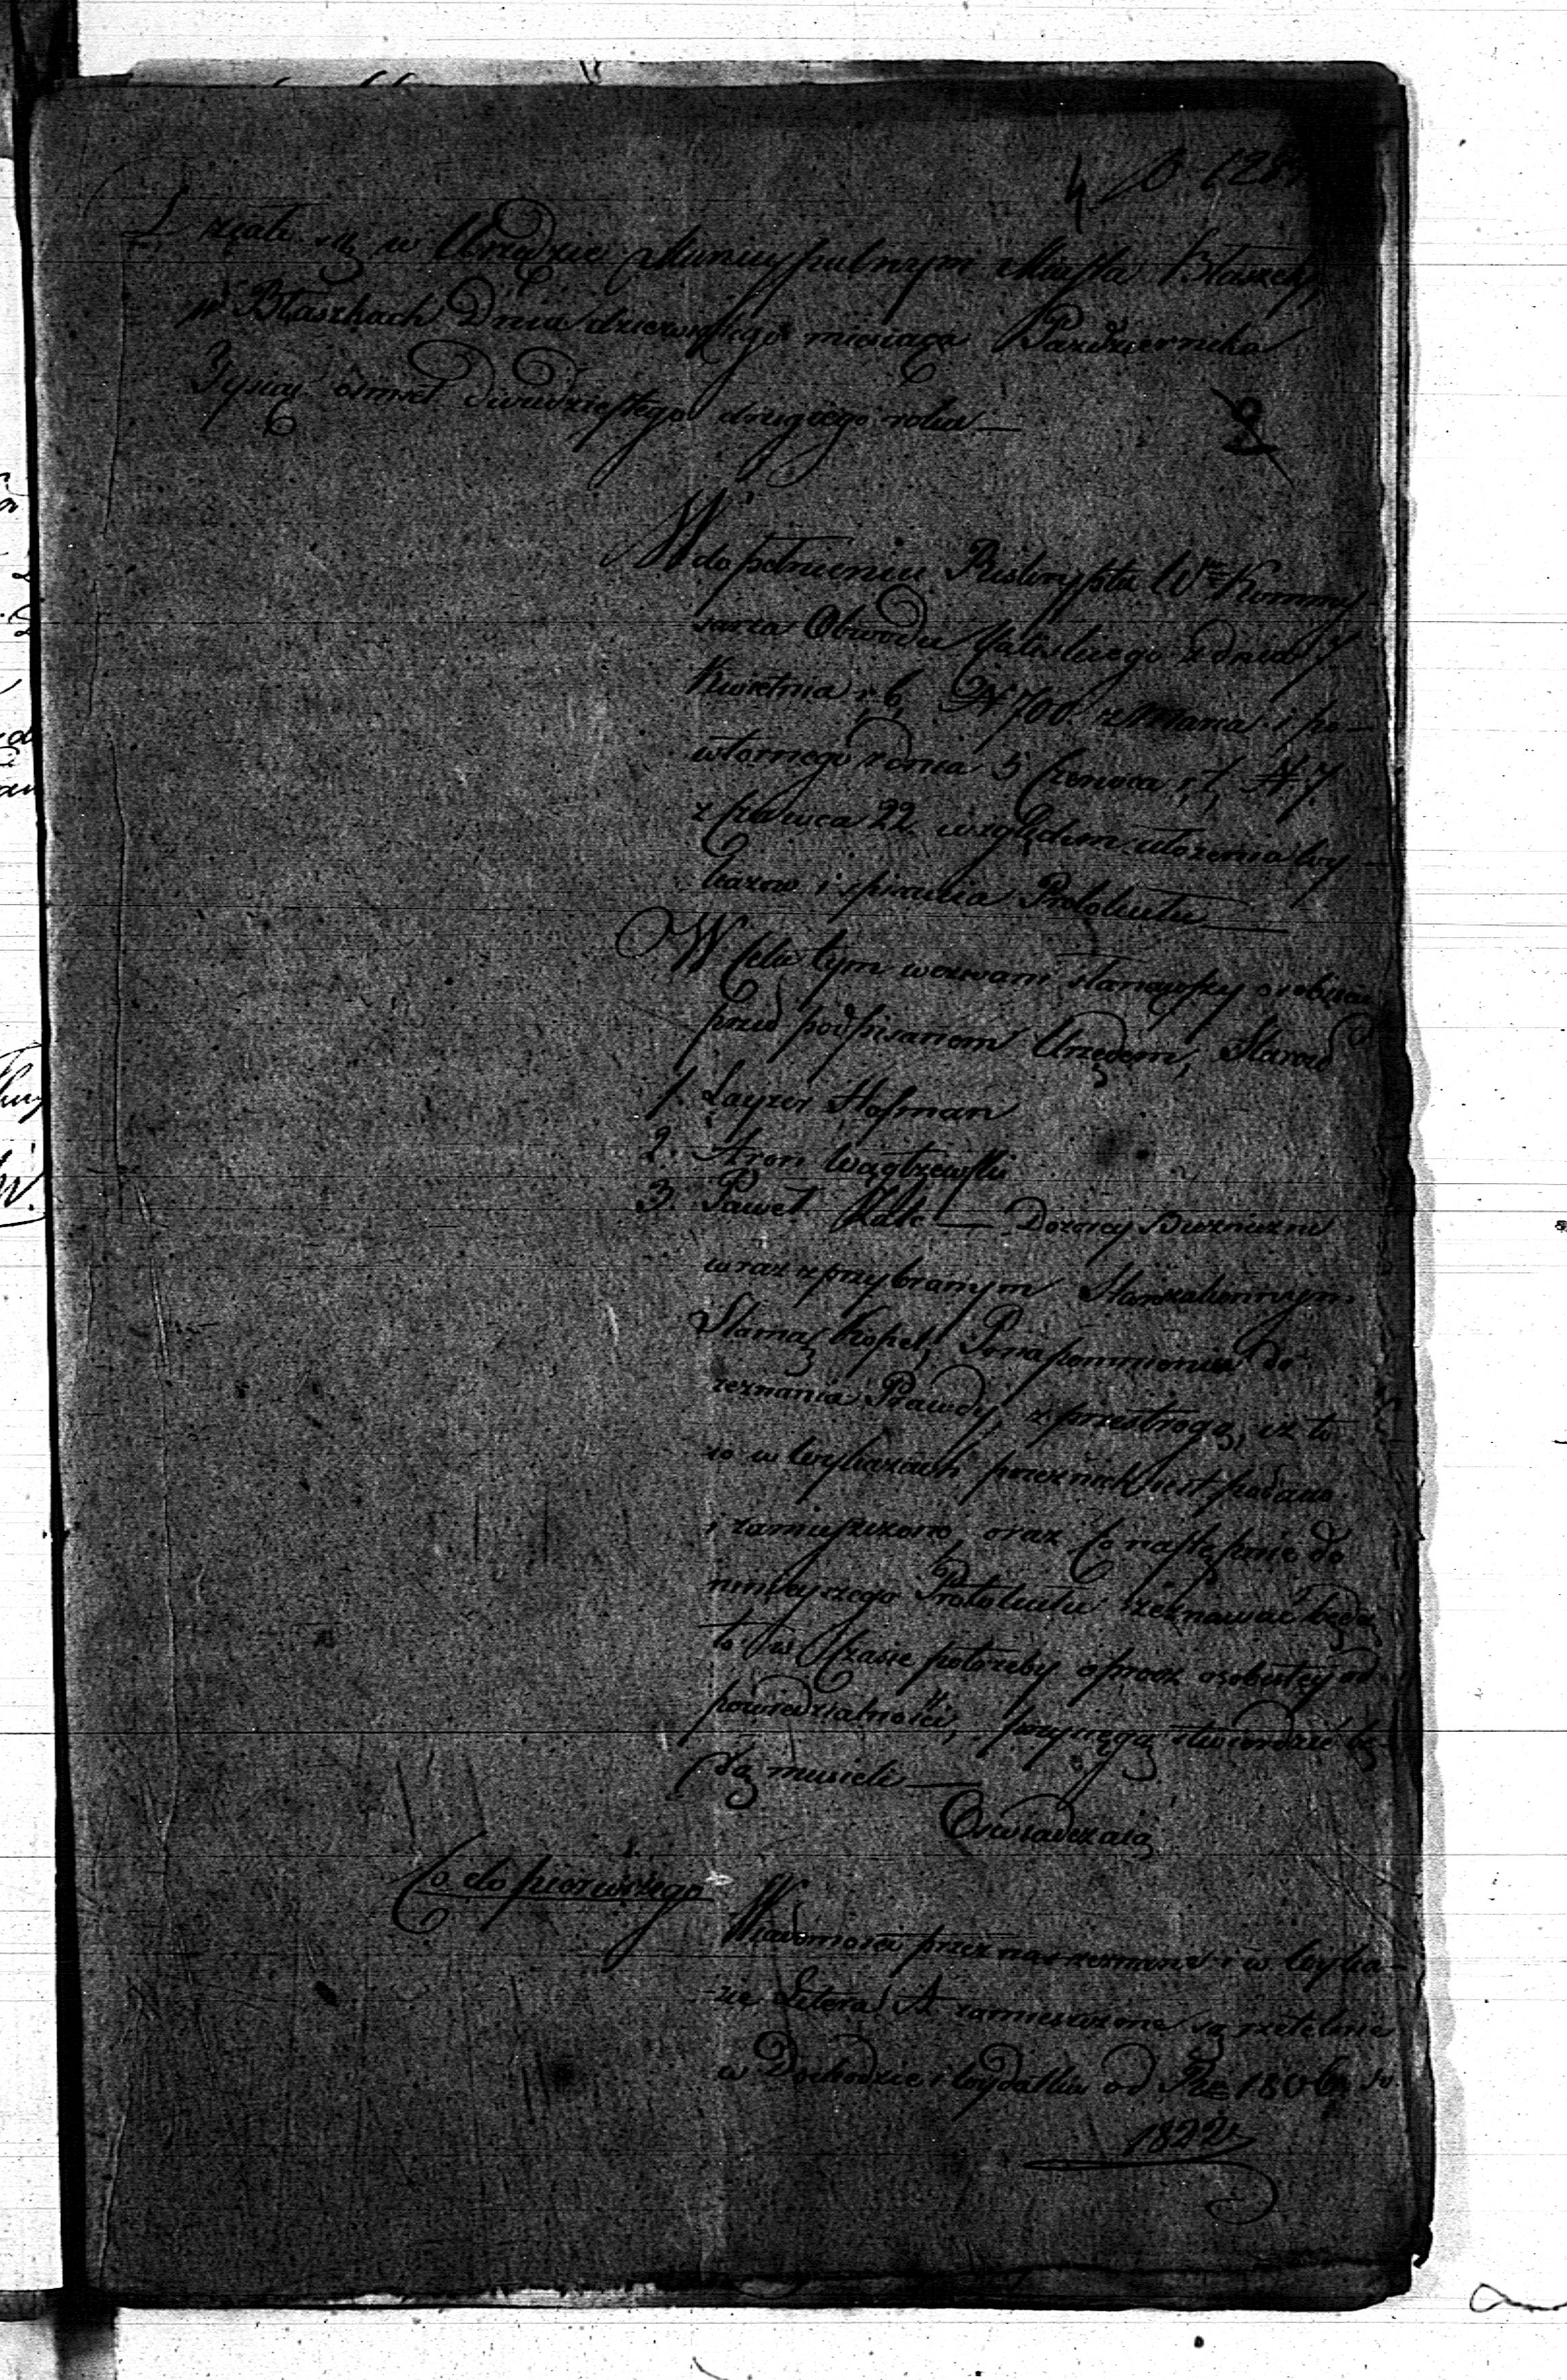 Działo się w Urzędzie Municypalnym Miasta Błaszek
w Błaszkach Dnia dziewiątego miesiąca Października
Tysiąc ośmset dwudziestego drugiego roku —
2
W dopełnieniu Reskryptu Wo Kommis
sarza Obwodu Kaliskiego z dnia 7
Kwietnia r. b. N 700. i po-
wtornego z dnia 5 Czerwca r. t. N. 7
z Czerwca 22 względem ułożenia Wy
kazow i spisania Protokułu —
W Celu tym wezwani stanąwszy osobiście
przed podpisanem Urzędem, Starozd
1. Layzer Hofman
2. Aron
3. Paweł Katz — Dozorcy Buzniczni
wraz z przybranym Starozakonnym
Slamą Kopel, Po napomnieniu do
zeznania Prawdy, z przestrogą, iż to
co w Wykazach przez nich jest podano
i zamieszczono, oraz Co następnie do
ninieyszego Protokułu zeznawać będą
to w Czasie potrzeby oprocz osobistey od
powiedzialności, przysięgą stwierdzić bę-
dą musieli —
Oswiadczaią
Co do pierwszego
Wiadomości przez nas zeznane i w Wyka-
zie Litera A zamieszczone są rzetelne
w Dochodzie i Wydatku od Ru 1806. do
1822